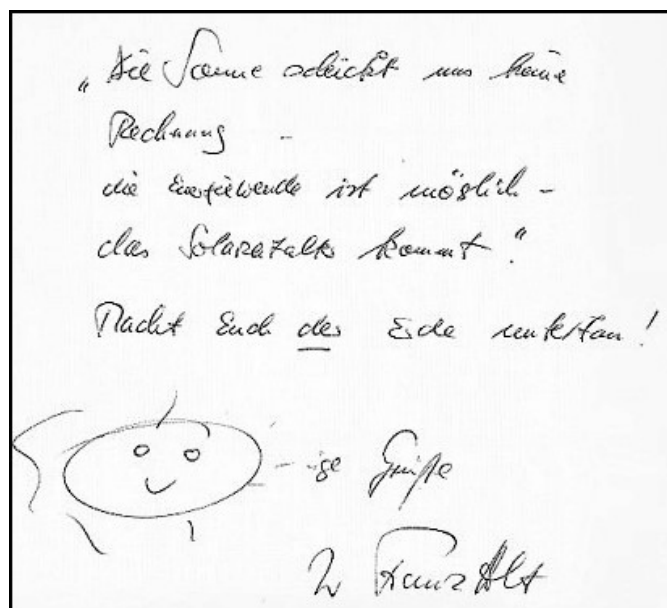 „Die Sonne schickt uns keine
Rechnung -
die Energiewende ist möglich -
das Solarzeitalter kommt."
Macht Euch der Erde untertan!
- ige Grüße
Ihr Franz Alt